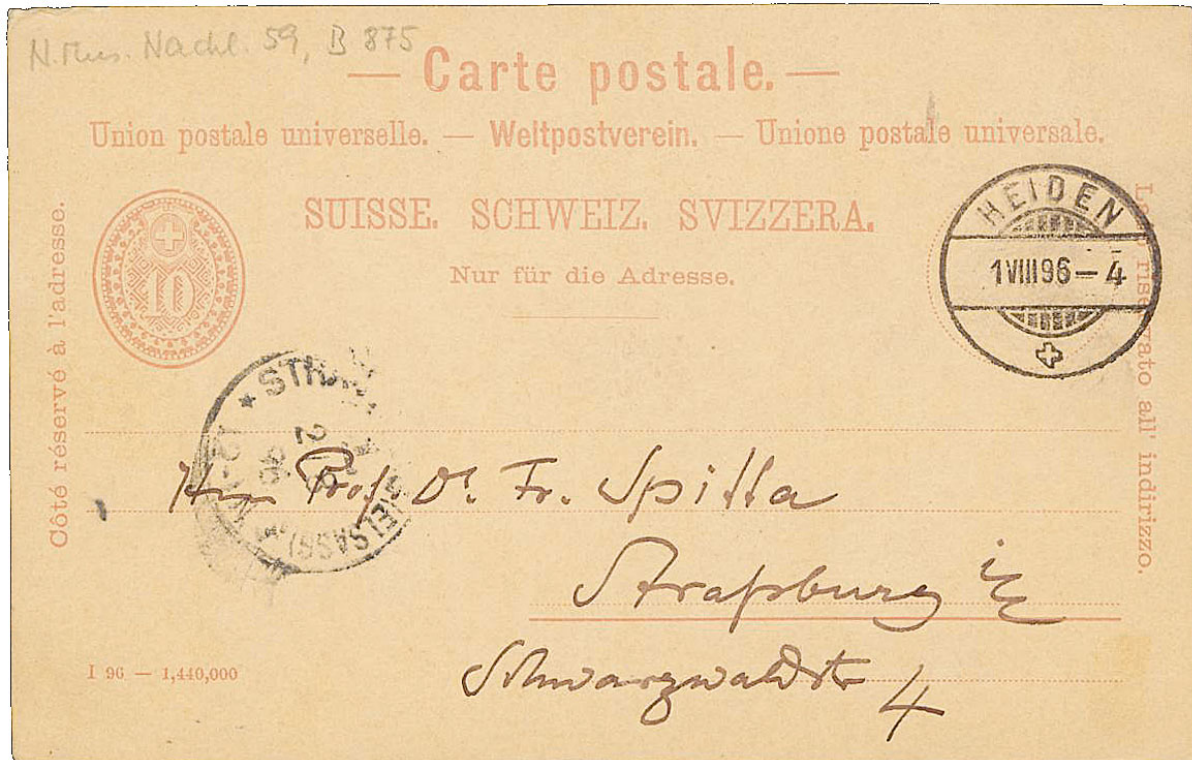 N. Mus. Nachl. 59, B 875
— Carte postale. —
Union postale universelle. — Weltpostverein. — Unione postale universale.
SUISSE. SCHWEIZ. SVIZZERA.
Nur für die Adresse.
Côté réservé à l'adresse.
10
HEIDEN
1 VIII 96 – 4
all' indirizzo.
Herrn Prof. Dr. Fr. Spitta
Straßburg i/E
Schwarzwaldstr 4
I 96 — 1,440,000